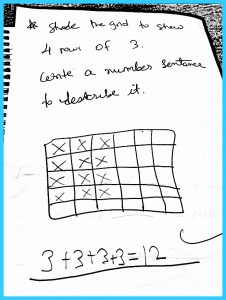 * Shade the grid to show
4 rows of 3.
Write a number sentence
to describe it.
3+3+3+3=12